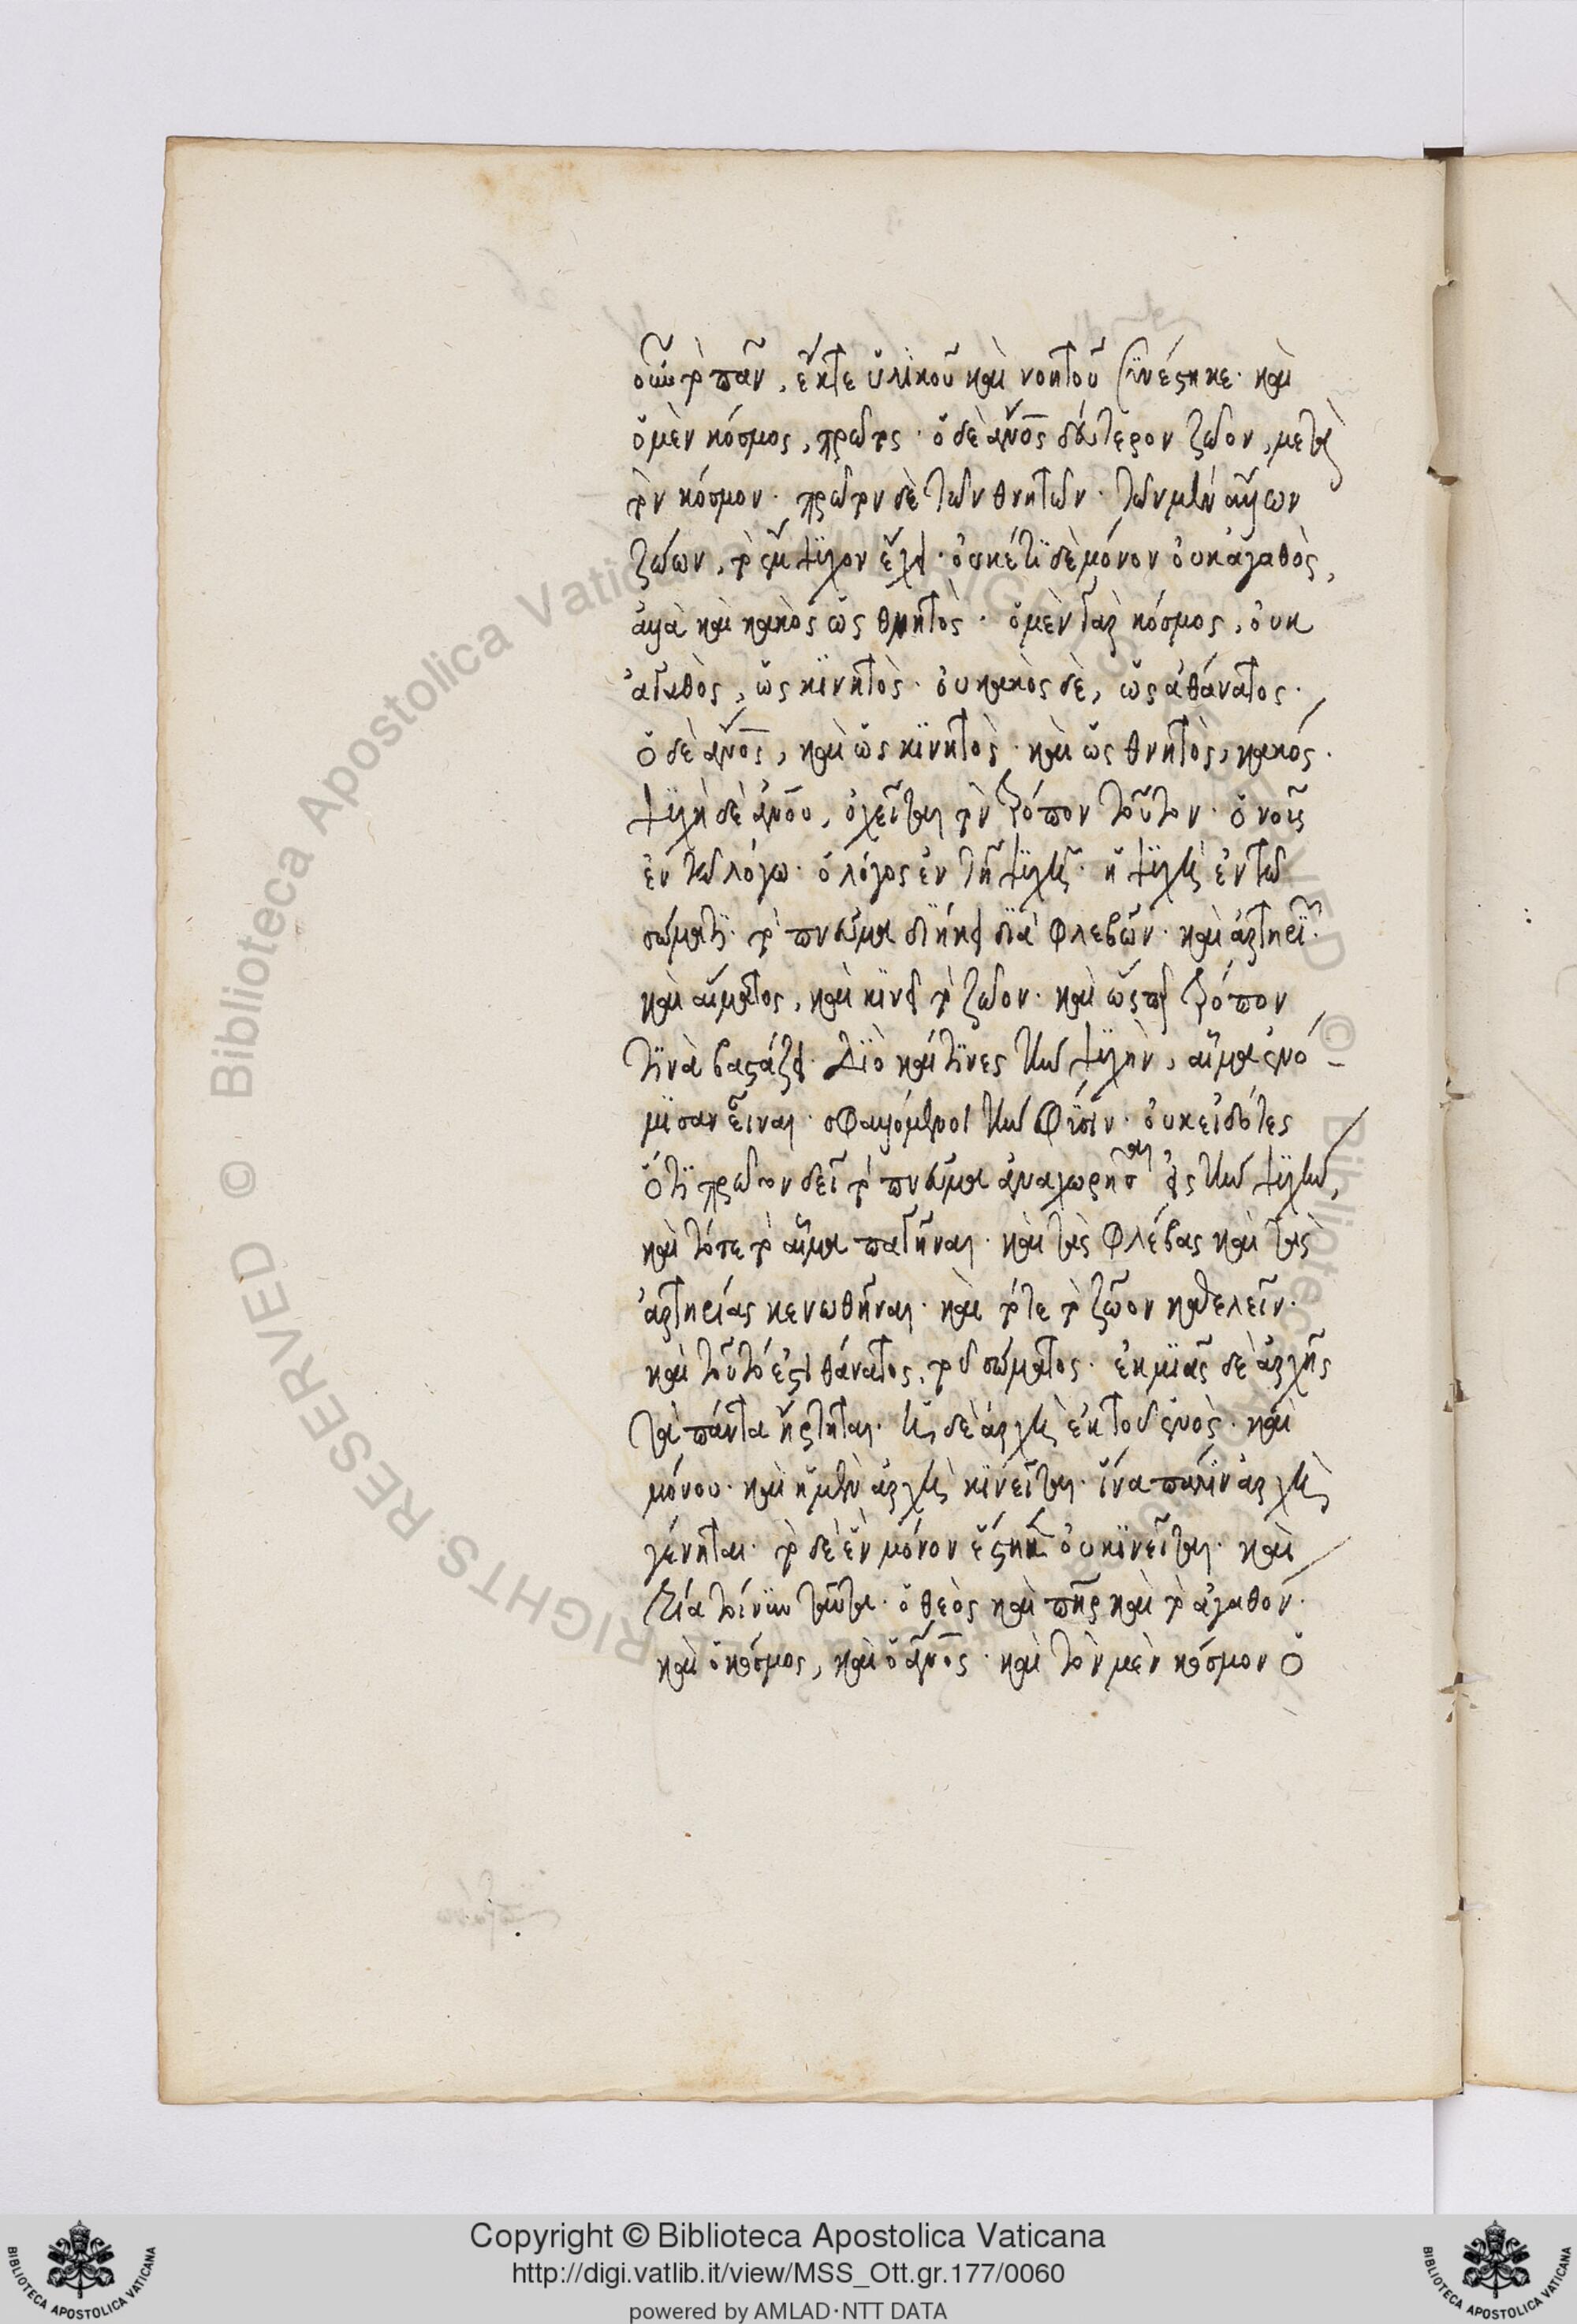 οὖν τὸ πᾶν, ἔκτε ὑλικοῦ καὶ νοητοῦ συνέστηκε· καὶ
ὁ μὲν κόσμος, πρῶτος· ὁ δὲ ἄνος δεύτερον ζῶον, μετὰ
τὸν κόσμον· πρῶτον δὲ τῶν θνητῶν· τῶν μὲν ἄλλων
ζώων, τὸ ἔμψυχον ἔχει· οὐκέτι δὲ μόνον οὐκ ἀγαθὸς,
ἀλλὰ καὶ κακὸς ὡς θνητὸς· ὁ μὲν γὰρ κόσμος, οὐκ
ἀγαθὸς, ὡς κϊνητὸς· οὐ κακὸς δὲ, ὡς ἀθάνατος·
ὁ δὲ ἄνος, καὶ ὡς κϊνητὸς· καὶ ὡς θνητὸς, κακός·
ψυχὴ δὲ ἀνου, ὀχεῖται τὸν τρόπον τοῦτον· ὁ νοῦς
ἐν τῶ λόγω· ὁ λόγος ἐν τῆ ψυχῆ· ἡ ψυχὴ ἐν τῶ
σώματι· τὸ πνεῦμα διήκει διὰ φλεβῶν· καὶ ἀρτηρϊῶν·
καὶ αἵματος, καὶ κϊνεῖ τὸ ζῶον· καὶ ὥσπερ τρόπον
τϊνὰ βαστάζει· Διὸ καί τϊνες τὴν ψυχὴν, αἷμα ἐνό
μϊσαν εἶναι· σφαλλόμενοι τὴν φύσϊν· οὐκ εἰδότες
ὅτϊ πρῶτον δεῖ τὸ πνεῦμα ἀναχωρῆσαι εἰς τὴν ψυχὴν,
καὶ τότε τὸ αἷμα παγῆναι· καὶ τὰς φλέβας καὶ τὰς
ἀρτηρίας κενωθῆναι· καὶ τότε τὸ ζῶον καθελεῖν·
καὶ τοῦτό ἐστι θάνατος, τοῦ σώματος· ἐκ μϊᾶς δὲ ἀρχῆς
τὰ πάντα ἤρτηται· ἡ δὲ ἀρχὴ ἐκ τοῦ ἑνὸς· καὶ
μόνου· καὶ ἡ μὲν ἀρχὴ κϊνεῖται· ἵνα πάλϊν ἀρχὴ
γένηται· τὸ δὲ ἓν μόνον ἕστηκεν οὐ κϊνεῖται· καὶ
τρία τοίνυν ταῦτα· ὁ θεὸς καὶ πηρ καὶ τὸ ἀγαθόν·
καὶ ὁ κόσμος, καὶ ὁ ἄνος· καὶ τὸν μὲν κόσμον ὁ
Copyright © Biblioteca Apostolica Vaticana
http://digi.vatlib.it/view/MSS_Ott.gr.177/0060
powered by AMLAD·NTT DATA